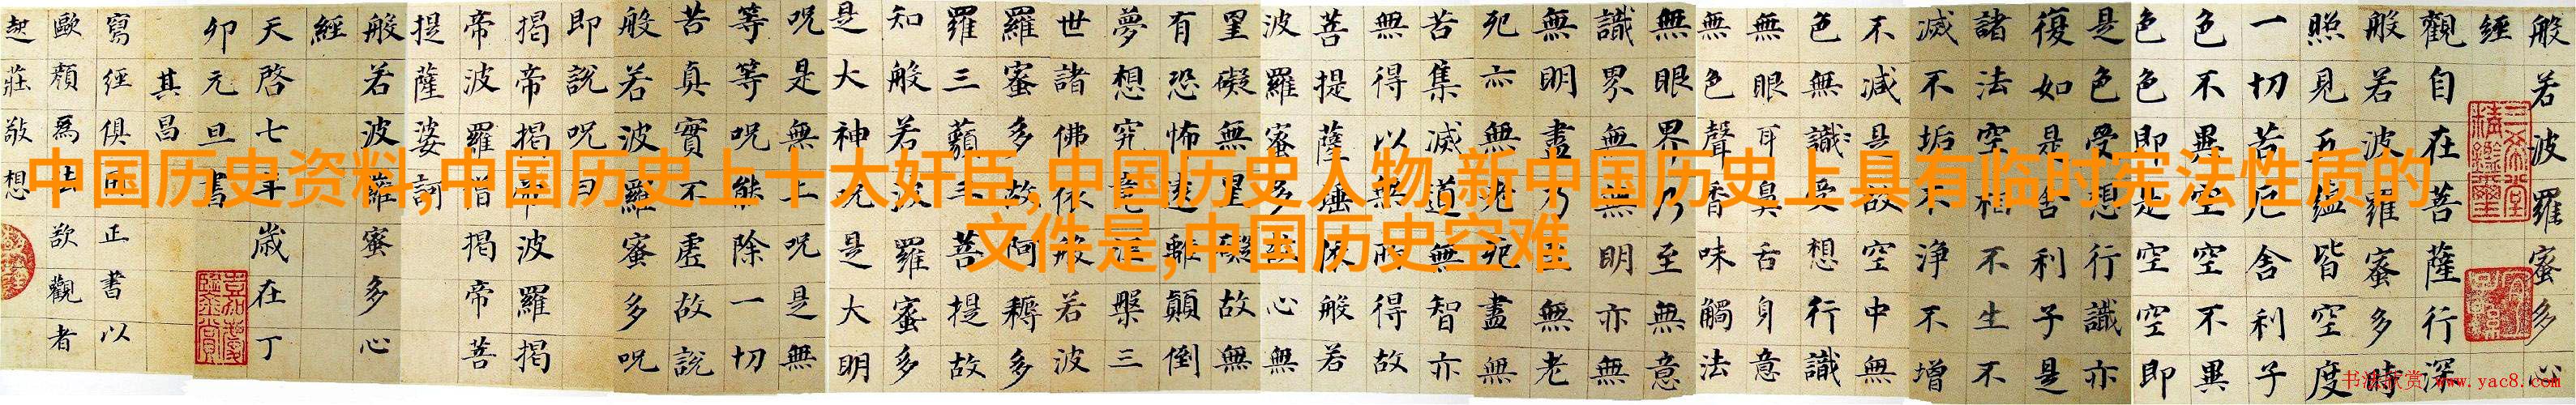 中国历史资料,中国历史上十大奸臣,中国历史人物,新中国历史上具有临时宪法性质的
文件是,中国历史空难
般若波羅蜜多心
經
觀自在菩薩行深
般若波羅蜜多時
照見五蘊皆空度
一切苦厄舍利子
色不異空空不異
色色即是空空即
是色受想行識亦
復如是舍利子是
諸法空相不生不
滅不垢不淨不增
不減是故空中無
色無識受想行識
無眼耳鼻舌身意
無色聲香味觸法
無眼界乃至無意
識界無無明亦無
無明盡乃至無老
死亦無老死盡無
苦集滅道無智亦
無得以無所得故
菩提薩埵依般若
波羅蜜多故心無
罣礙無罣礙故無
有恐怖遠離顛倒
夢想究竟涅槃三
世諸佛依般若波
羅蜜多故阿耨多
羅三藐三菩提故
知般若波羅蜜多
是大神呪是大明
呪是無上呪是無
等等呪能除一切
苦真實不虛故說
般若波羅蜜多呪
即說呪曰
揭帝揭帝波羅揭
帝波羅僧揭帝菩
提薩婆訶
般若波羅蜜多心
經
天啓七年歲在丁
卯元旦書
其昌
寫經俱正書以
歐顏為法欲觀者
起莊敬想
书法欣赏 www.yac8.com